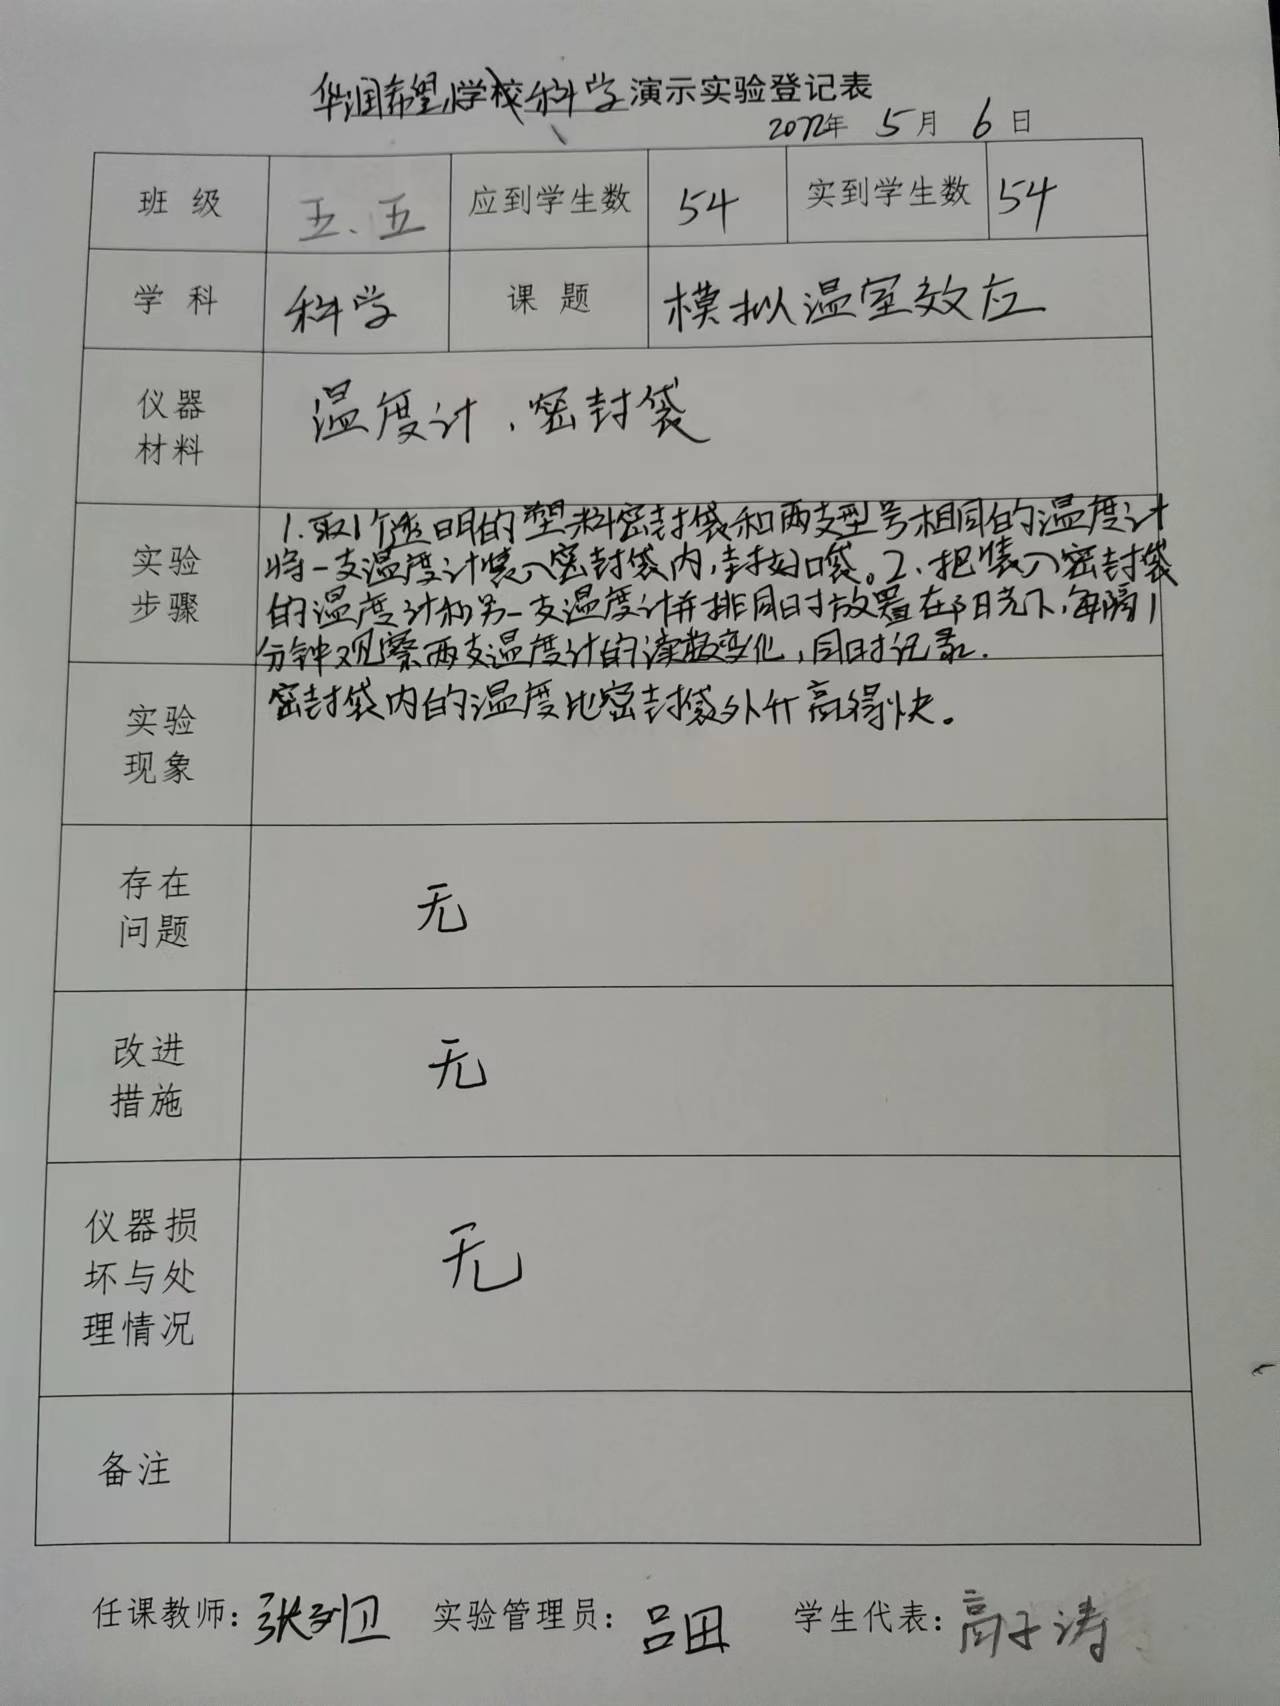 华润希望小学校科学演示实验登记表
2022年 5月 6日
班 级 五.五 应到学生数 54 实到学生数 54
学 科 科学 课 题 模拟温室效应
仪器
材料
温度计、密封袋
实验
步骤
1.取1个透明的塑料密封袋和两支型号相同的温度计
将一支温度计装入密封袋内,封好口袋。2、把装入密封袋
的温度计和另一支温度计并排同时放置在阳光下,每隔1
分钟观察两支温度计的读数变化,同时记录.
实验
现象
密封袋内的温度比密封袋外升高得快。
存在
问题
无
改进
措施
无
仪器损
坏与处
理情况
无
备注
任课教师:张列卫 实验管理员:吕田 学生代表:高子涛